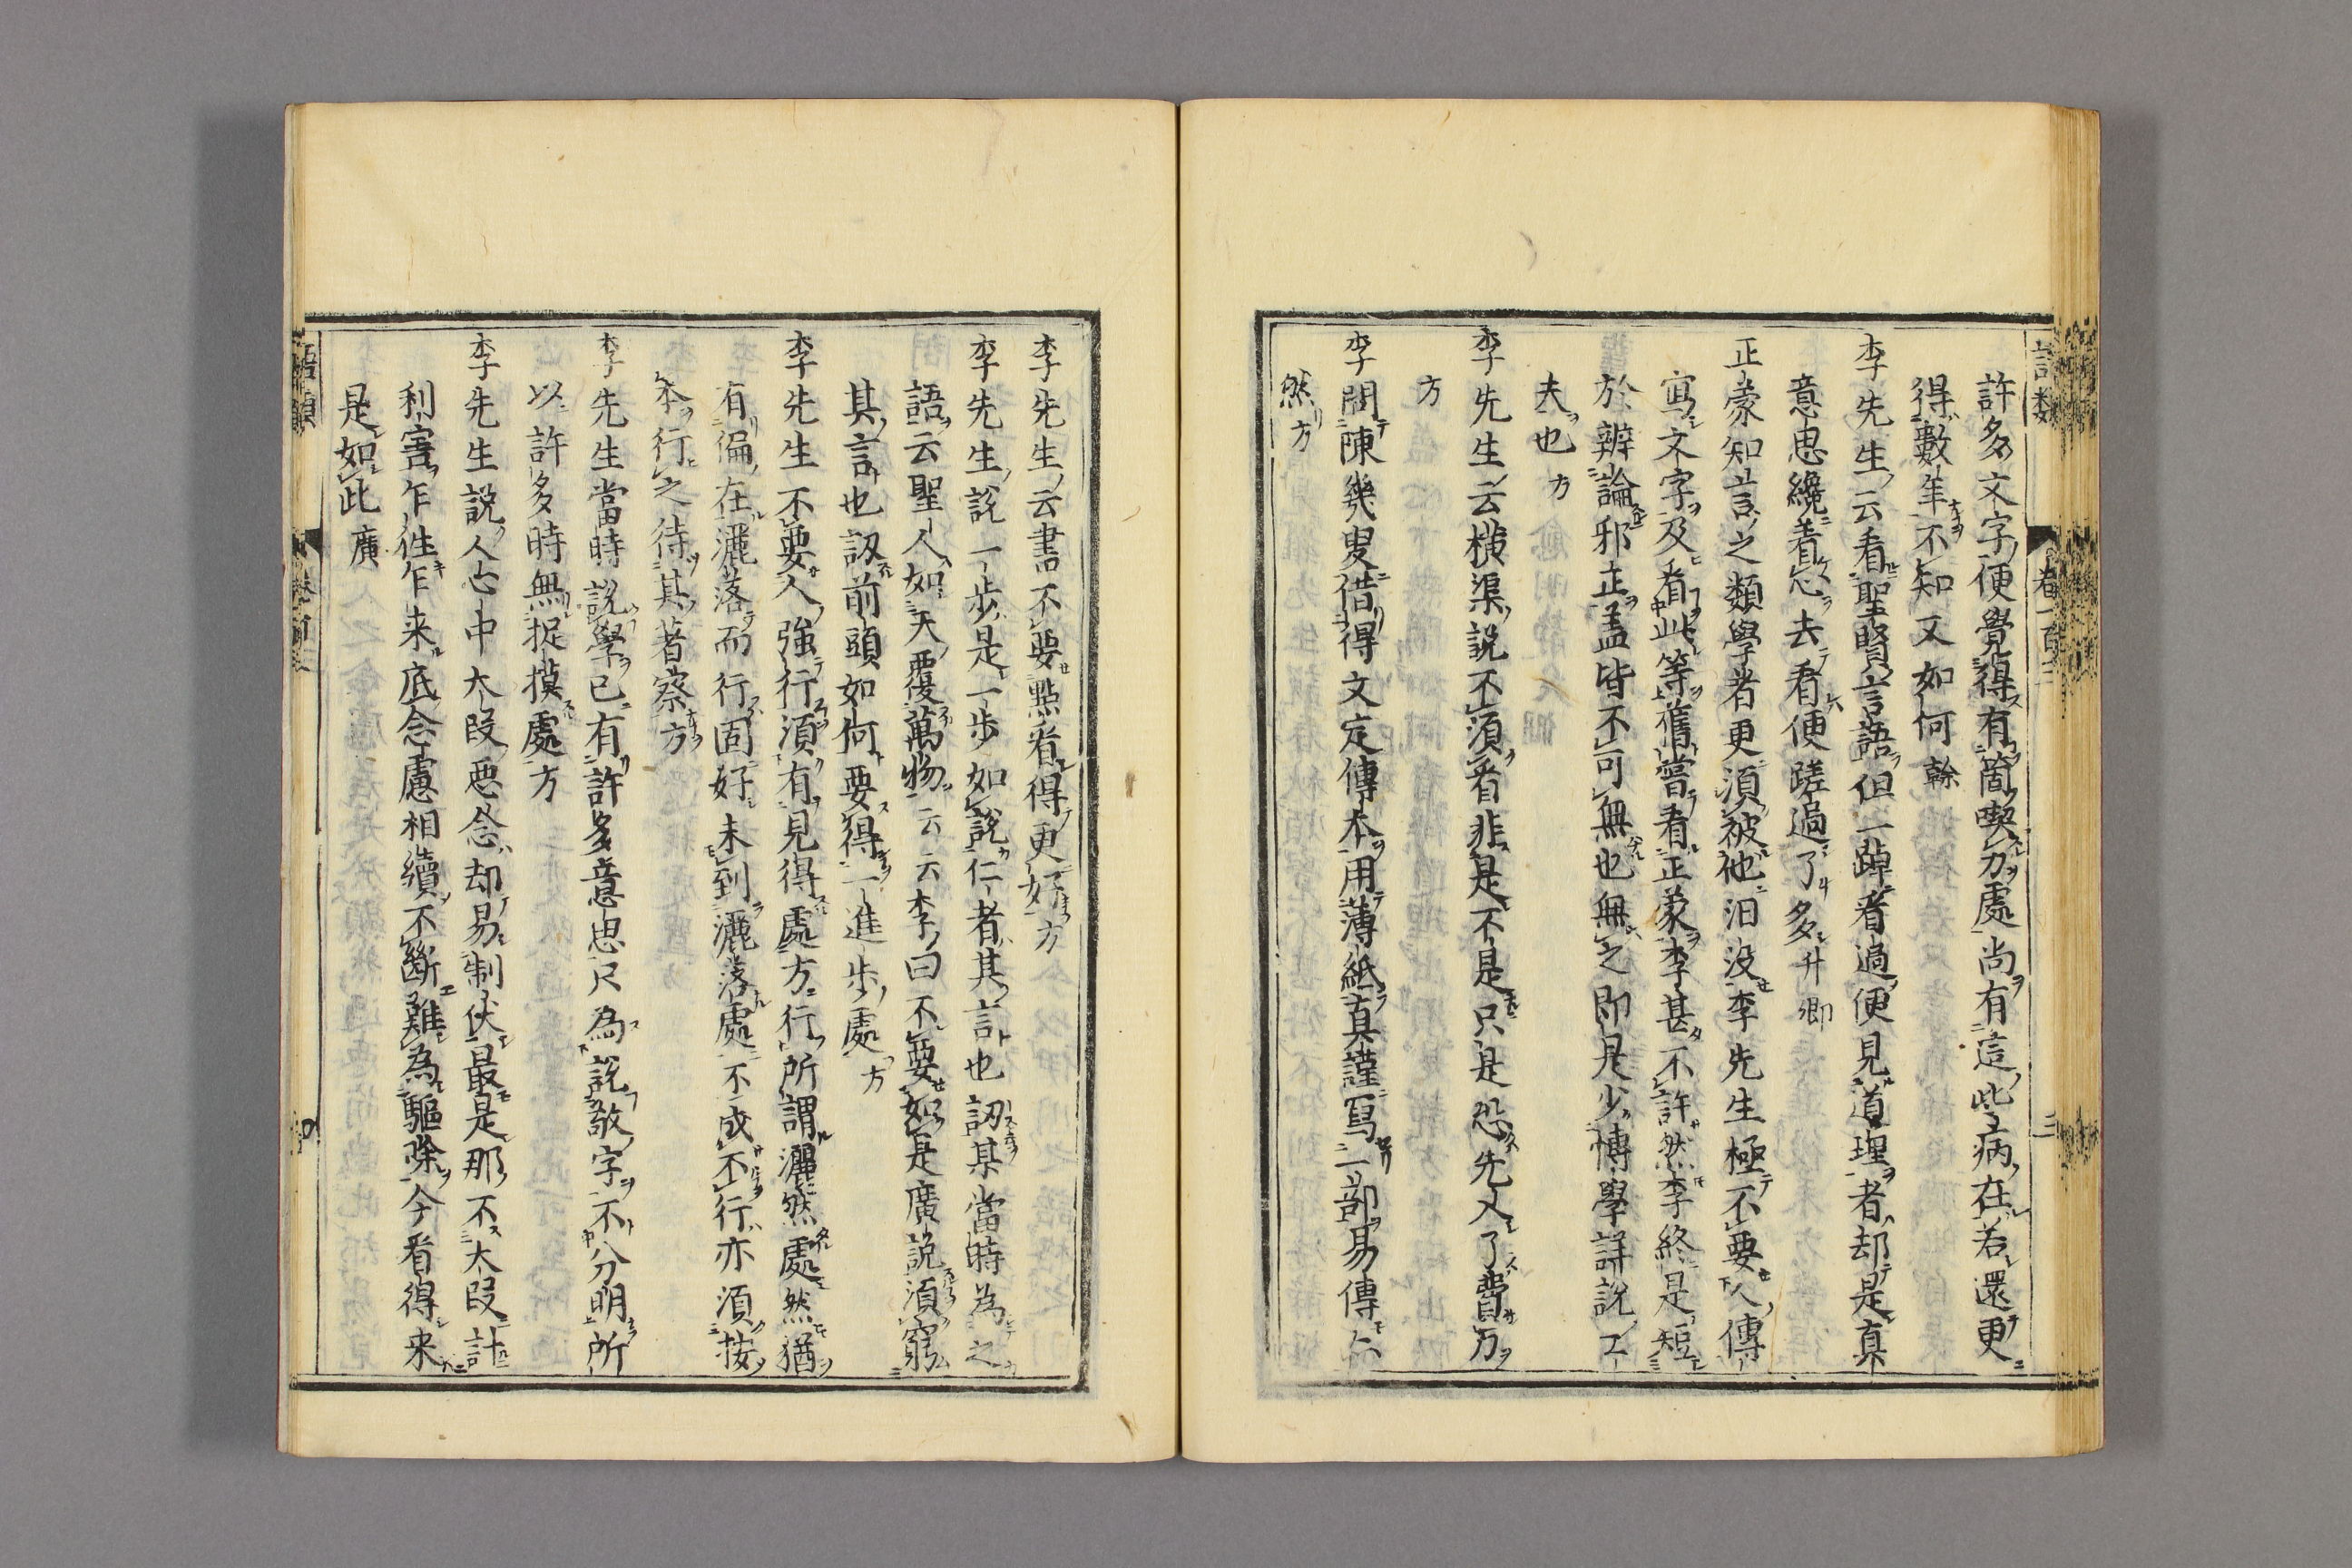 許多文字便覺得有箇喫力處尚有這些病在若還更
得數年不知又如何 榦
李先生云看聖賢言語但一踔看過便見道理者却是真
意思纔着心去看便蹉過了多 升卿
正蒙知言之類學者更須被他汨没李先生極不要人傳
寫文字及看此等舊嘗看正蒙李甚不許然李終是短
於辨論邪正蓋皆不可無也無之即是少博學詳説工
夫也 方
李先生云横渠説不須看非是不是只是恐先入了費力
方
李問陳幾叟借得文定傳本用薄紙真謹寫一部易傳亦
然 方
李先生云書不要點看得更好 方
李先生説一步是一步如説仁者其言也訒某當時為之
語云聖人如天覆萬物云云李曰不要如是廣説須窮
其言也訒前頭如何要得一進步處 方
李先生不要人強行須有見得處方行所謂灑然處然猶
有偏在灑落而行固好未到灑落處不成不行亦須按
本行之待其著察 方
李先生當時説學已有許多意思只為説敬字不分明所
以許多時無捉摸處 方
李先生説人心中大段惡念却易制伏最是那不大段計
利害乍往乍来底念慮相續不斷難為驅除今看得来
是如此 廣
語類